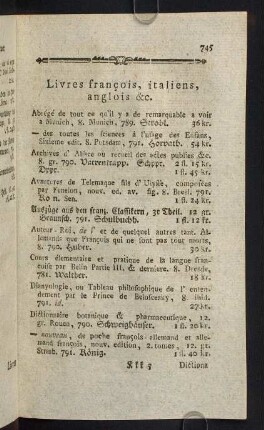 745
Livres françois, italiens,
anglois &c.
Abrégé de tout ce qu'il y a de remarquable a voir
a Munich, 8. Munich, 789. Strobl. 36 kr.
— des toutes les sciences à l'usage des Enfans,
sixieme edit. 8. Potsdam, 791. Horvath. 54 kr.
Archives d' ou recueil des publiés &c.
8. gr. 790. Varrentrapp. Schppr. 2 fl. 15 kr.
Drpr. 1 fl. 45 kr.
Avantures de Telemaque fils d'Ulysse, composées
par Fenelon, nouv. ed. av. fig. 8. Bresl. 791.
Korn. Sen. 1 fl. 24 kr.
Auszüge aus den franz. Classikern, 3r Theil. 12 gr.
Braunsch. 791. Schulbuchh. 1 fl. 12 kr.
Auteur de et de quelquel autres tant Al-
lemands que François qui ne sont pas tous morts.
8. 792. Huber. 30 kr.
Cours élementaire et pratique de la langue fran-
çoise par Partie III. & derniere. 8. Dresde,
781. Walther. 18 kr.
Dianyologie, ou Tableau philosophique de l'enten-
dement par le Prince de Beloselsky, 8. ibid.
791. id. 27 kr.
Dictionnaire botanique & pharmaceutique, 12.
gr. Rouen, 790. Schweighäuser. 1 fl. 20 kr.
— nouveau, de poche françois allemand et alle-
mand françois, nouv. edition, 2. tomes, 12. gr.
Strasb. 791. König. 1 fl. 40 kr.
Kkk 3 Dictionn